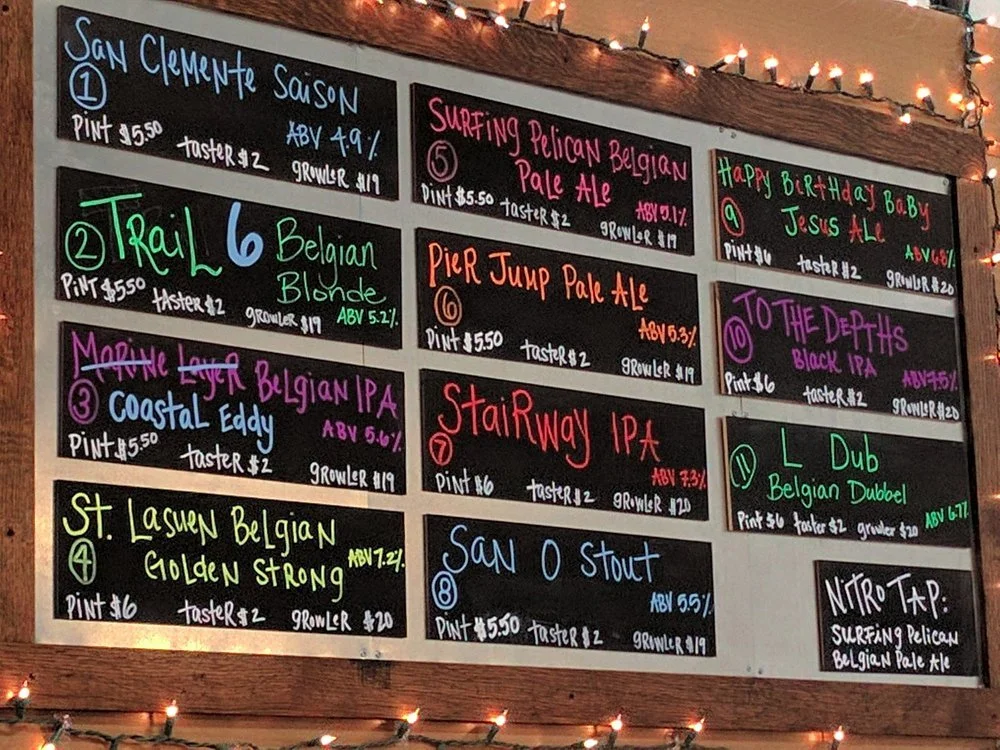 San Clemente Saison
1
ABV 4.9%
Pint $5.50 taster $2 growler $19
2 Trail 6 Belgian
Blonde
Pint $5.50 taster $2 growler $19 ABV 5.2%
Marine Layer Belgian IPA
3 Coastal Eddy
ABV 5.6%
Pint $5.50 taster $2 growler $19
St. Lasuen Belgian
4 Golden Strong ABV 7.2%
Pint $6 taster $2 growler $20
Surfing Pelican Belgian
5 Pale Ale
ABV 5.1%
Pint $5.50 taster $2 growler $19
Pier Jump Pale Ale
6
ABV 5.3%
Pint $5.50 taster $2 growler $19
Stairway IPA
7
ABV 7.3%
Pint $6 taster $2 growler $20
San O Stout
8
ABV 5.5%
Pint $5.50 taster $2 growler $19
Happy Birthday Baby
9 Jesus Ale
ABV 6.8%
Pint $6 taster $2 growler $20
To The Depths
10 Black IPA
ABV 7.5%
Pint $6 taster $2 growler $20
11 L Dub
Belgian Dubbel
ABV 6.7%
Pint $6 taster $2 growler $20
Nitro Tap:
Surfing Pelican
Belgian Pale Ale